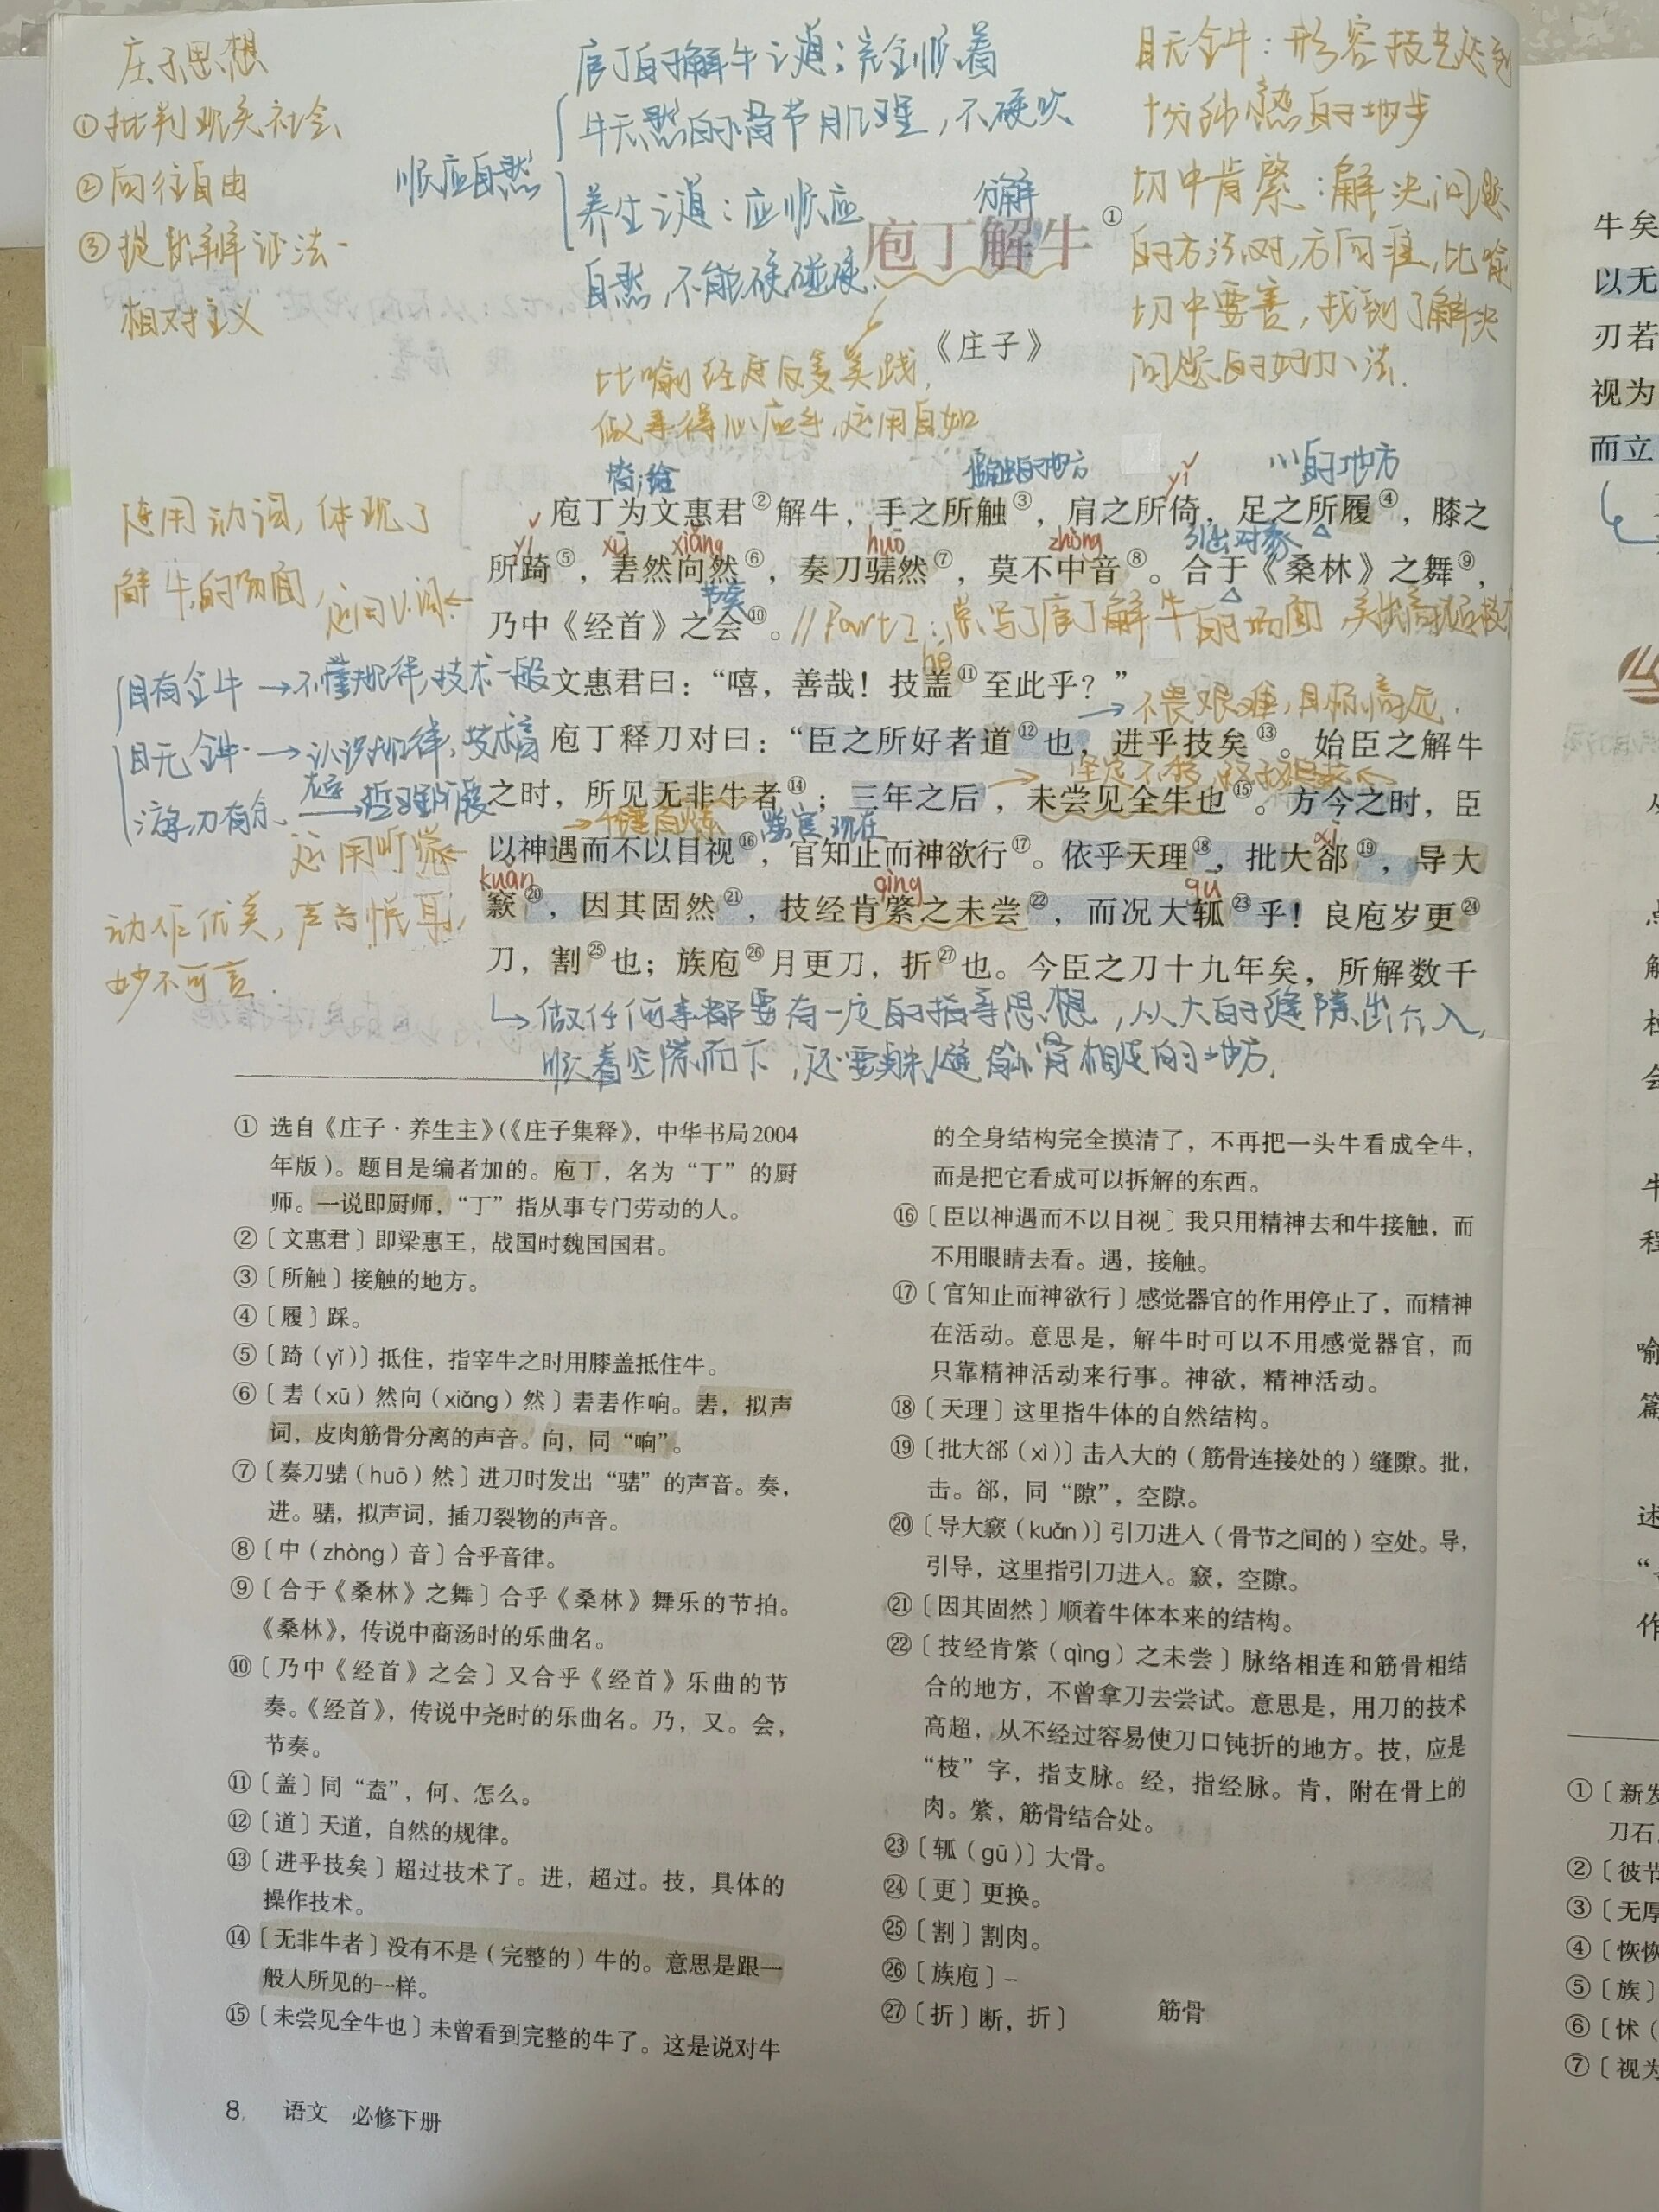 庄子思想
①批判现实社会
②向往自由
③提出辨证法-
相对主义
庖丁的解牛之道：完全顺着
牛天然的骨节肌理，不硬砍
顺应自然
养生之道：应顺应
自然，不能硬碰硬.
分解
目无全牛：形容技艺达到
十分纯熟的地步
切中肯綮：解决问题
的方法对,方向准,比喻
切中要害，找到了解决
问题的好办法.
庖丁解牛①
《庄子》
比喻经过反复实践,
做事得心应手,运用自如
替;给
接触的地方
yǐ
踩的地方
庖丁为文惠君②解牛，手之所触③，肩之所倚，足之所履④，膝之
yǐ xū xiǎng huō zhòng 引出对象
所踦⑤，砉然向然⑥，奏刀騞然⑦，莫不中音⑧。合于《桑林》之舞⑨，
节奏
乃中《经首》之会⑩。
连用动词，体现了
解牛的场面
文惠君曰：“嘻，善哉！技盖⑪至此乎？”
hé
目有全牛→不懂规律,技术一般
目无全牛→认识规律,技术高
→不畏艰难,目标高远.
庖丁释刀对曰：“臣之所好者道⑫也，进乎技矣⑬。始臣之解牛
之时，所见无非牛者⑭；三年之后，未尝见全牛也⑮。方今之时，臣
游刃有余
以神遇而不以目视⑯，官知止而神欲行⑰。依乎天理⑱，批大郤⑲，导大
xì
kuǎn qìng gū
窾⑳，因其固然㉑，技经肯綮之未尝㉒，而况大軱㉓乎！良庖岁更㉔
刀，割㉕也；族庖㉖月更刀，折㉗也。今臣之刀十九年矣，所解数千
动作优美，声音悦耳,
妙不可言.
做任何事都要有一定的指导思想，从大的缝隙出介入,
① 选自《庄子·养生主》（《庄子集释》，中华书局2004
年版）。题目是编者加的。庖丁，名为“丁”的厨
师。一说即厨师，“丁”指从事专门劳动的人。
②〔文惠君〕即梁惠王，战国时魏国国君。
③〔所触〕接触的地方。
④〔履〕踩。
⑤〔踦（yǐ）〕抵住，指宰牛之时用膝盖抵住牛。
⑥〔砉（xū）然向（xiǎng）然〕砉砉作响。砉，拟声
词，皮肉筋骨分离的声音。向，同“响”。
⑦〔奏刀騞（huō）然〕进刀时发出“騞”的声音。奏，
进。騞，拟声词，插刀裂物的声音。
⑧〔中（zhòng）音〕合乎音律。
⑨〔合于《桑林》之舞〕合乎《桑林》舞乐的节拍。
《桑林》，传说中商汤时的乐曲名。
⑩〔乃中《经首》之会〕又合乎《经首》乐曲的节
奏。《经首》，传说中尧时的乐曲名。乃，又。会，
节奏。
⑪〔盖〕同“盍”，何、怎么。
⑫〔道〕天道，自然的规律。
⑬〔进乎技矣〕超过技术了。进，超过。技，具体的
操作技术。
⑭〔无非牛者〕没有不是（完整的）牛的。意思是跟一
般人所见的一样。
⑮〔未尝见全牛也〕未曾看到完整的牛了。这是说对牛
的全身结构完全摸清了，不再把一头牛看成全牛，
而是把它看成可以拆解的东西。
⑯〔臣以神遇而不以目视〕我只用精神去和牛接触，而
不用眼睛去看。遇，接触。
⑰〔官知止而神欲行〕感觉器官的作用停止了，而精神
在活动。意思是，解牛时可以不用感觉器官，而
只靠精神活动来行事。神欲，精神活动。
⑱〔天理〕这里指牛体的自然结构。
⑲〔批大郤（xì）〕击入大的（筋骨连接处的）缝隙。批，
击。郤，同“隙”，空隙。
⑳〔导大窾（kuǎn）〕引刀进入（骨节之间的）空处。导，
引导，这里指引刀进入。窾，空隙。
㉑〔因其固然〕顺着牛体本来的结构。
㉒〔技经肯綮（qìng）之未尝〕脉络相连和筋骨相结
合的地方，不曾拿刀去尝试。意思是，用刀的技术
高超，从不经过容易使刀口钝折的地方。技，应是
“枝”字，指支脉。经，指经脉。肯，附在骨上的
肉。綮，筋骨结合处。
㉓〔軱（gū）〕大骨。
㉔〔更〕更换。
㉕〔割〕割肉。
㉖〔族庖〕
㉗〔折〕断，折〕 筋骨
8 语文 必修下册
牛矣
以无
刃若
视为
而立
①〔新发
刀石
②〔彼节
③〔无厚
④〔恢恢
⑤〔族〕
⑥〔怵（
⑦〔视为